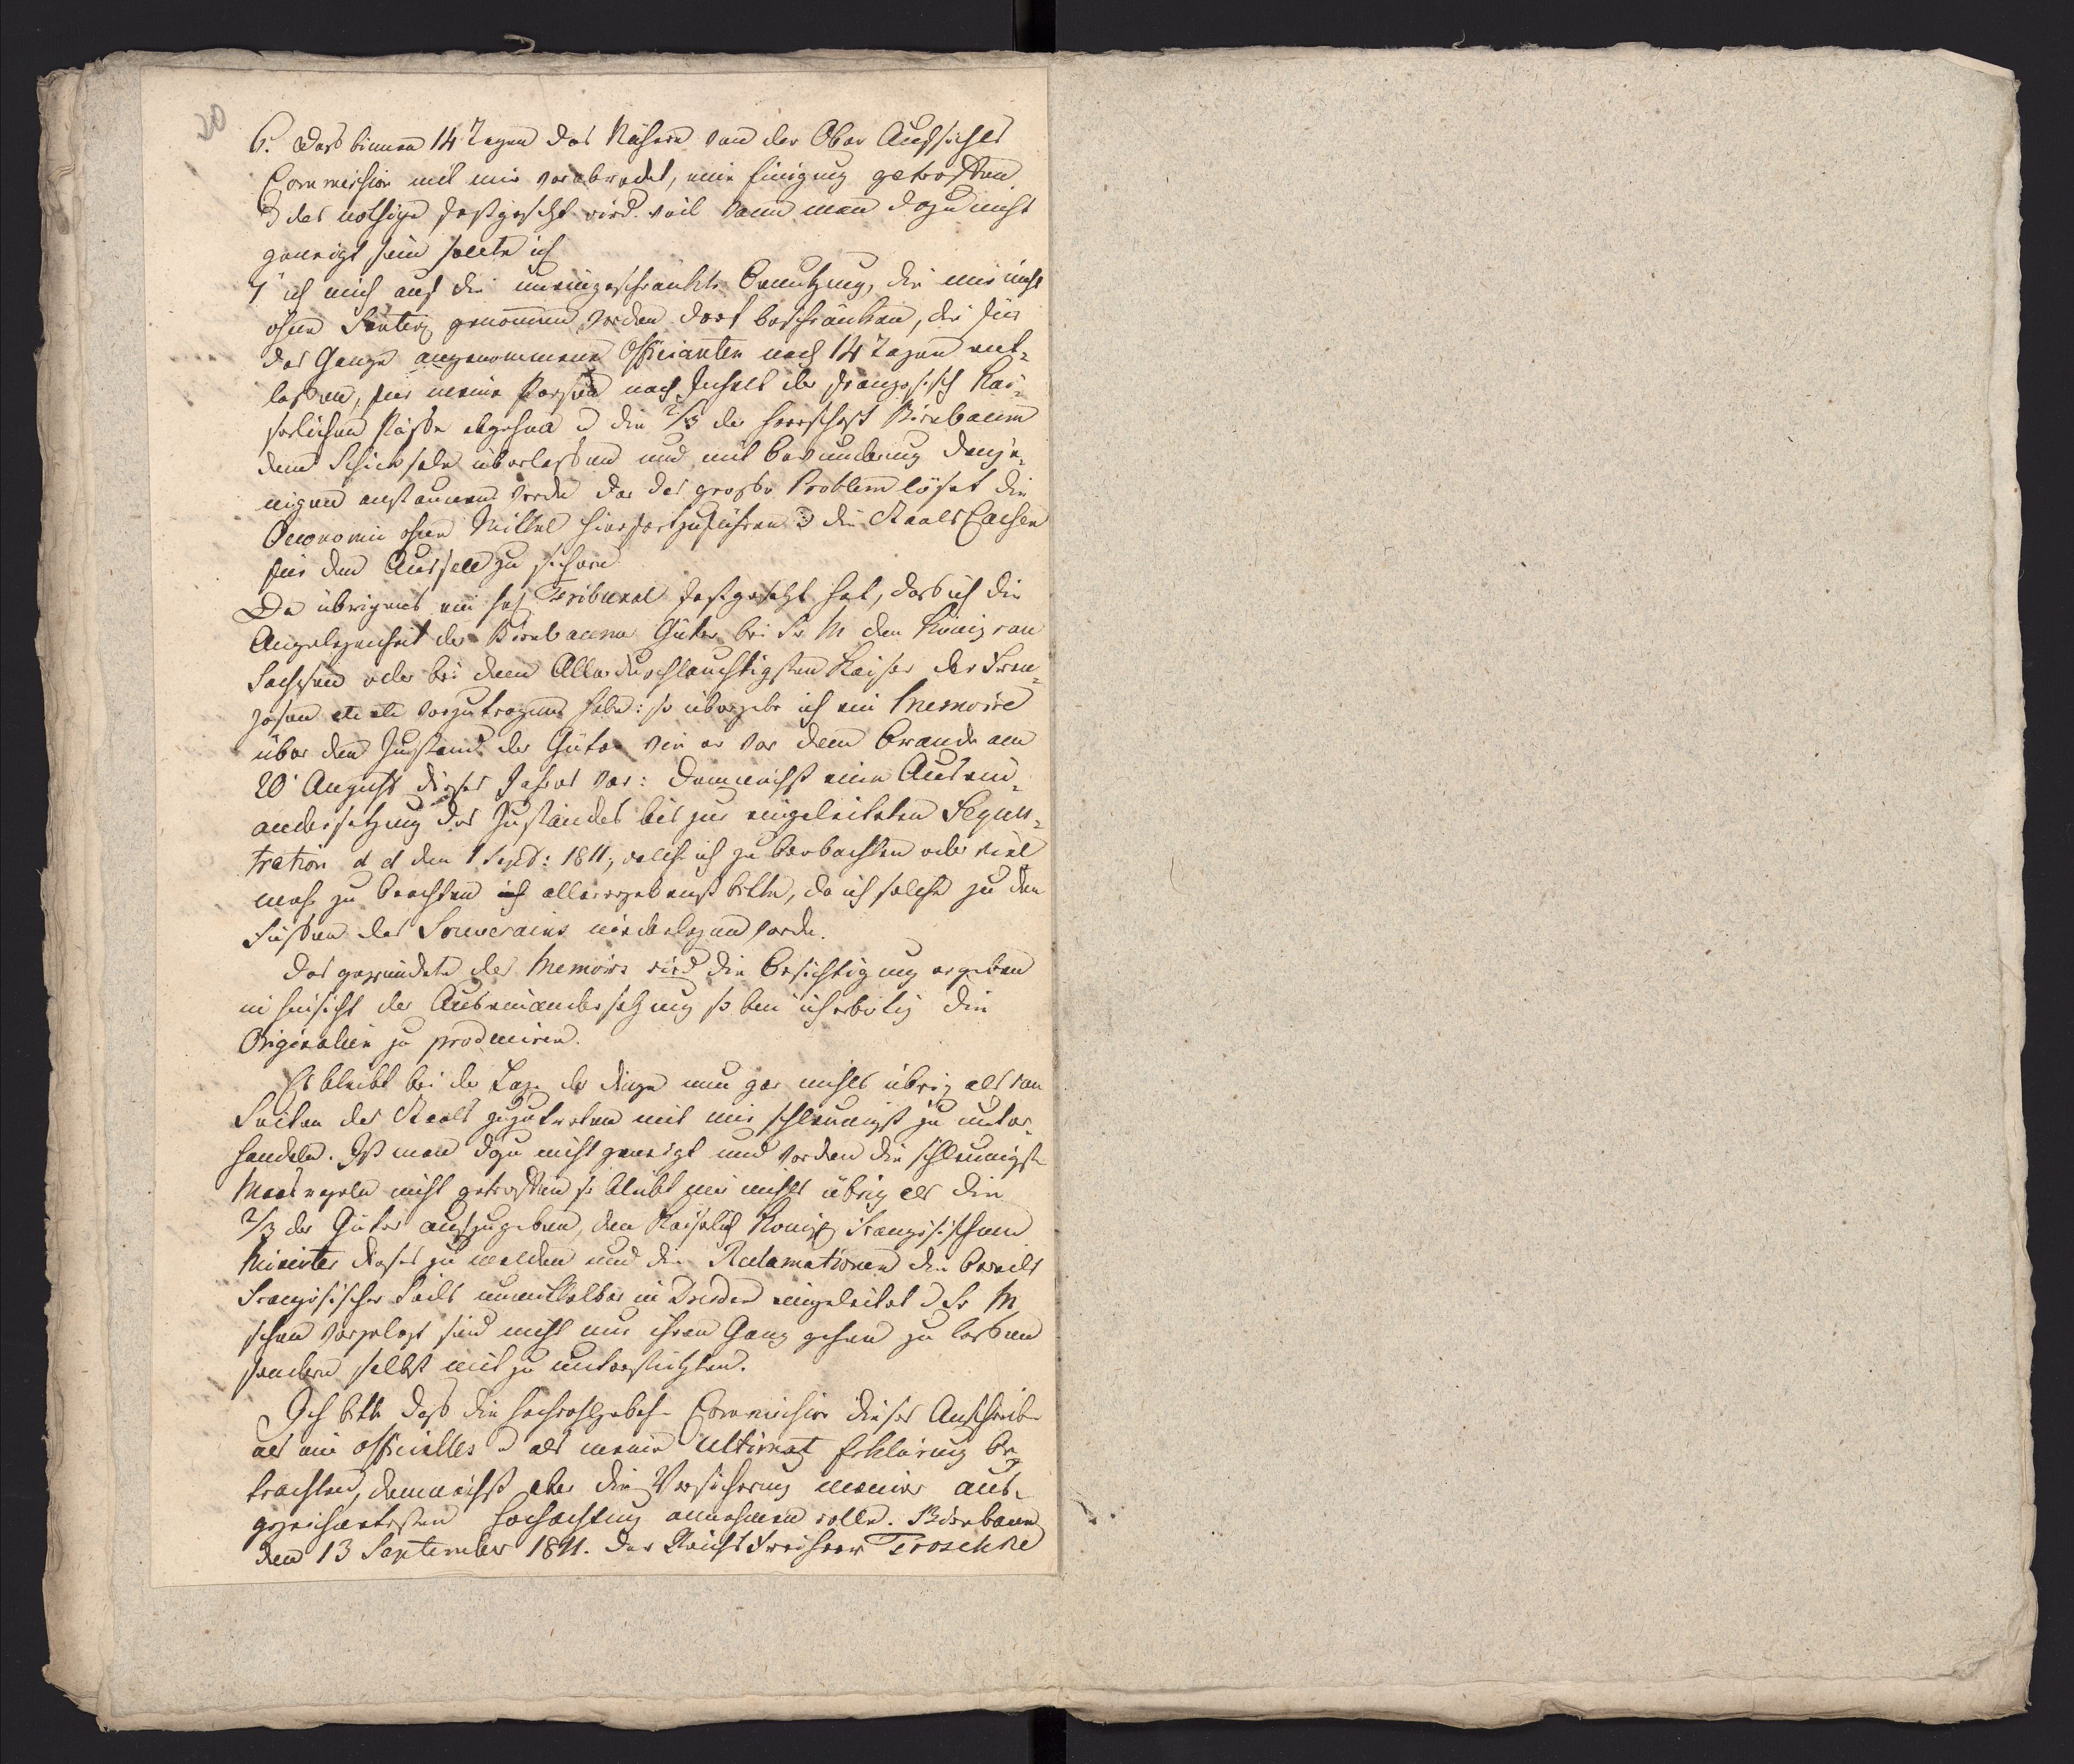 6. dass binnen 14 Tagen das Nähere von der Ober Aufsichts
Commission mit mir verabredet, eine Einigung getroffen
u das nöthige festgesetzt wird. weil wenn man dazu nicht
geneigt sein sollte ich
7 ich mich auf die uneingeschränkte Benutzung, die mir nicht
ohne Sentenz genommen werden darf beschränken, die für
das Ganze angenommene Officianten nach 14 Tagen ent-
lassen, für meine Person nach Inhalt der französisch Kai-
serlichen Pässe abgehen u die 2/3 der Herrschaft Birnbaum
dem Schicksale überlassen und mit Bewunderung denje-
nigen anstaunen werde der das grosse Problem löset die
Oeconomie ohne Mittel hier fortzuführen u die Staats Cassen
für den Ausfall zu sichern
Da übrigens ein hoh Tribunal festgesetzt hat, dass ich die
Angelegenheit der Birnbaumer Güter bei Sr M den König von
Sachsen oder bei dem Allerdurchlauchtigsten Kaiser der Fran-
zosen etc etc vorzutragen habe: so übergebe ich ein Memoire
über den Zustand der Güter wie er vor dem Brande am
20 August dieses Jahres war: demnächst eine Ausein-
andersetzung des Zustandes bis zur eingeleiteten Seques-
tration d d den 1 Sept: 1811, welche ich zu beobachten oder viel
mehr zu beachten ich allerergebenst bitte, da ich solche zu den
Füssen des Souverains niederlegen werde.
Das gegründete des Memoirs wird die Besichtigung ergeben
in hinsicht der Auseinandersetzung so bin ich erbötig die
Originalien zu produciren.
Es bleibt bei der Lage der Dinge nun gar nichts übrig als von
Seiten des Staats zuzutreten mit mir schleunigst zu unter-
handeln. Ist man dazu nicht geneigt und werden die schleunigste
Maasregeln nicht getroffen so bleibt mir nichts übrig als die
2/3 der Güter aufzugeben, den Kaiserlich Königl Französischen
Minister dieses zu melden und die Reclamationen die bereits
Französischer Seits unmittelbar in Dresden eingeleitet u Sr M
schon vorgelegt sind nicht nur ihren Gang gehen zu lassen
sondern selbst mit zu unterstützen.
Ich bitte dass die hochwohlgebohr Commission dieses Anschreiben
als ein officielles u als meine Ultimat Erklärung be-
trachten, demnächst aber die Versicherung meiner aus-
gezeichnetesten Hochachtung annehmen wolle. Birnbaum
den 13 September 1811. Der Reichs Freiherr Troschke